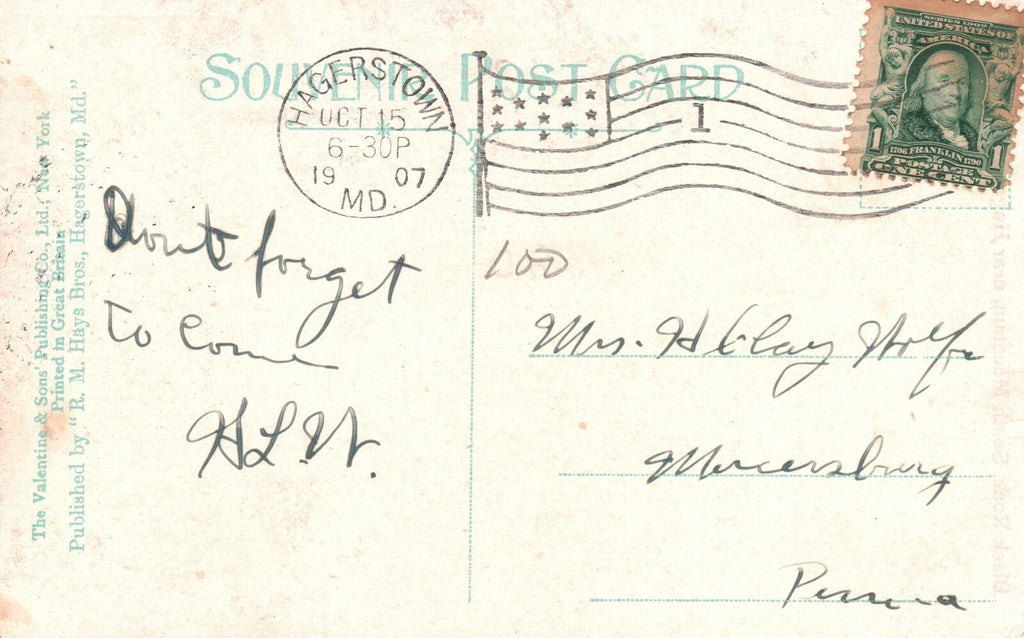 SOUVENIR POST CARD
HAGERSTOWN
OCT 15
6-30P
19 07
MD.
1
SERIES 1902
UNITED STATES OF
AMERICA
1 1
1706 FRANKLIN 1790
POSTAGE
ONE CENT
The Valentine & Sons' Publishing Co., Ltd., New York
Printed in Great Britain
Published by "R. M. Hays Bros., Hagerstown, Md."
Dont forget
to Come
H L. W.
100
Mrs. H Clay Wolfe
Mercersburg
Penna